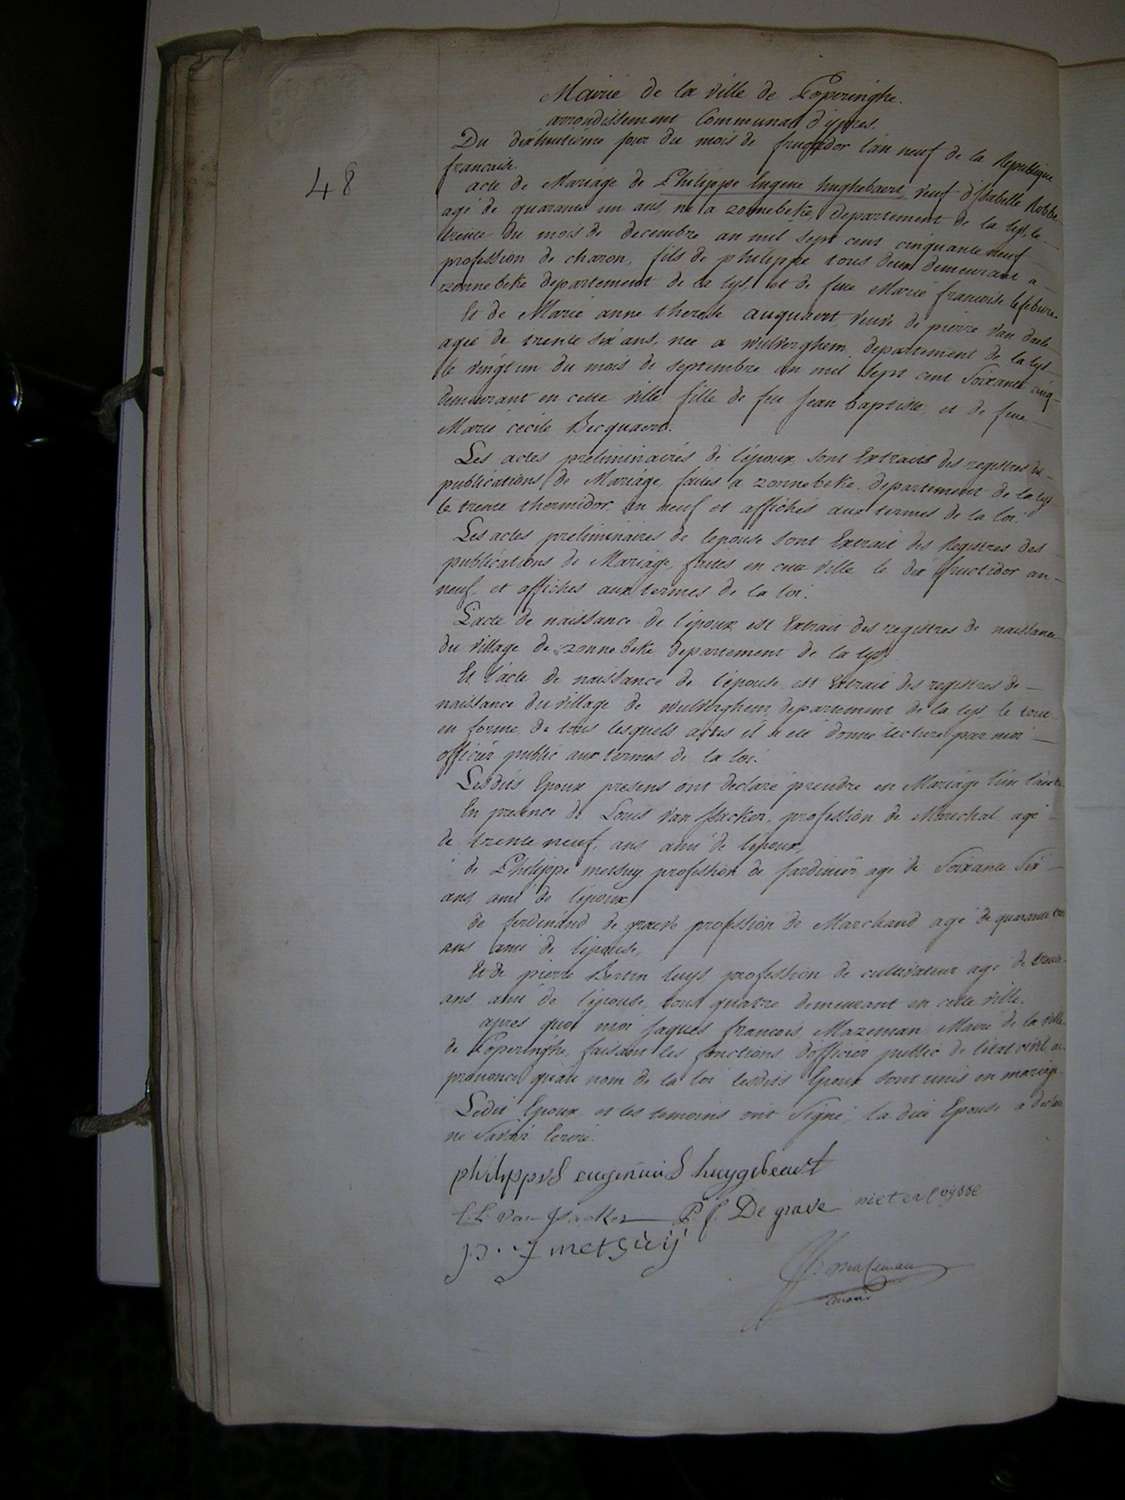 Mairie de la ville de Poperinghe.
arrondissement Communal d'ypres.
Du dixhuitieme jour du mois de fructidor l'an neuf de la Republique
francaise.
48
acte de Mariage de Philippe Eugene hughebaert, veuf d'Isabelle Robbe
agé de quarante un ans, né a zonnebeke, departement de la lys, le
trente du mois de decembre an mil sept cent cinquante neuf
profession de charon, fils de philippe tous deux demeurant a
zonnebeke departement de la lys, et de feue Marie francoise lefebvre.
Et de Marie anne therese auquaert, veuve de pierre van
agée de trente six ans, née a wulverghem, departement de la lys
le vingt un du mois de septembre an mil sept cent Soixante cinq
demeurant en cette ville fille de feu jean baptiste, et de feue
Marie cecile Becquaert.
Les actes preliminaires de l'époux sont Extraits des registres des
publications de Mariage faites a zonnebeke departement de la lys
le trente thermidor an neuf et affichés aux termes de la loi.
Les actes preliminaires de lepouse sont Extrait des Registres des
publications de Mariage faites en cette ville le dix fructidor an
neuf, et affichés aux termes de la loi.
L'acte de naissance de l'époux est Extrait des registres de naissance
du village de zonnebeke departement de la lys.
Et l'acte de naissance de l'épouse est Extrait des registres de
naissance du village de wulverghem departement de la lys le tout
en forme, de tous lesquels actes il a été donné lecture par moi
officier public aux termes de la loi.
Lesdits Epoux presens ont declaré prendre en Mariage l'un l'autre
En presence de Louis van profession de Marechal agé
de trente neuf ans ami de lepoux,
de Philippe metsuy profession de Jardinier agé de Soixante Six
ans ami de l'époux
de ferdinand de grave profession de Marchand agé de quarante
ans ami de l'épouse,
Et de pierre Bertin luys profession de cultivateur agé de
ans ami de l'épouse, tous quatre demeurant en cette ville.
apres quoi moi jaques francois Mazeman Maire de la ville
de Poperinghe faisant les fonctions d'officier public de l'etat civil ai
prononcé qu'au nom de la loi lesdits Epoux sont unis en mariage
Ledit Epoux et les temoins ont Signé, la dite Epouse a declaré
ne Savoir Ecrire.
philippus eugenius huygebaert
van P. f. De grave
p. J metsuij
Mazeman